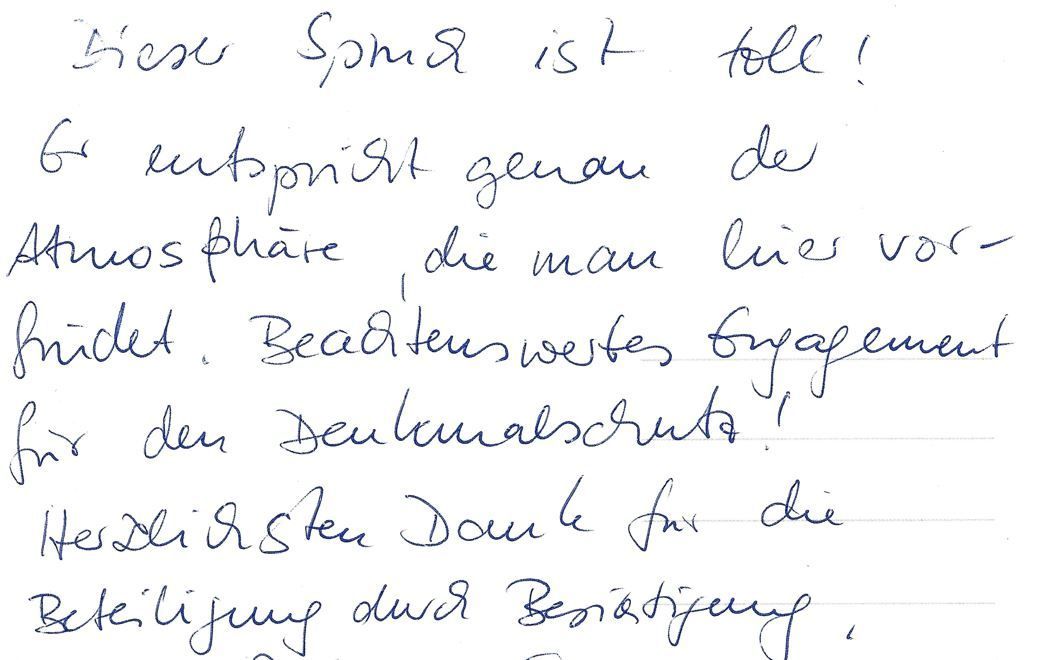 Dieser Spruch ist toll!
Er entspricht genau der
Atmosphäre, die man hier vor-
findet. Beachtenswertes Engagement
für den Denkmalschutz!
Herzlichsten Dank für die
Beteiligung durch Besichtigung,